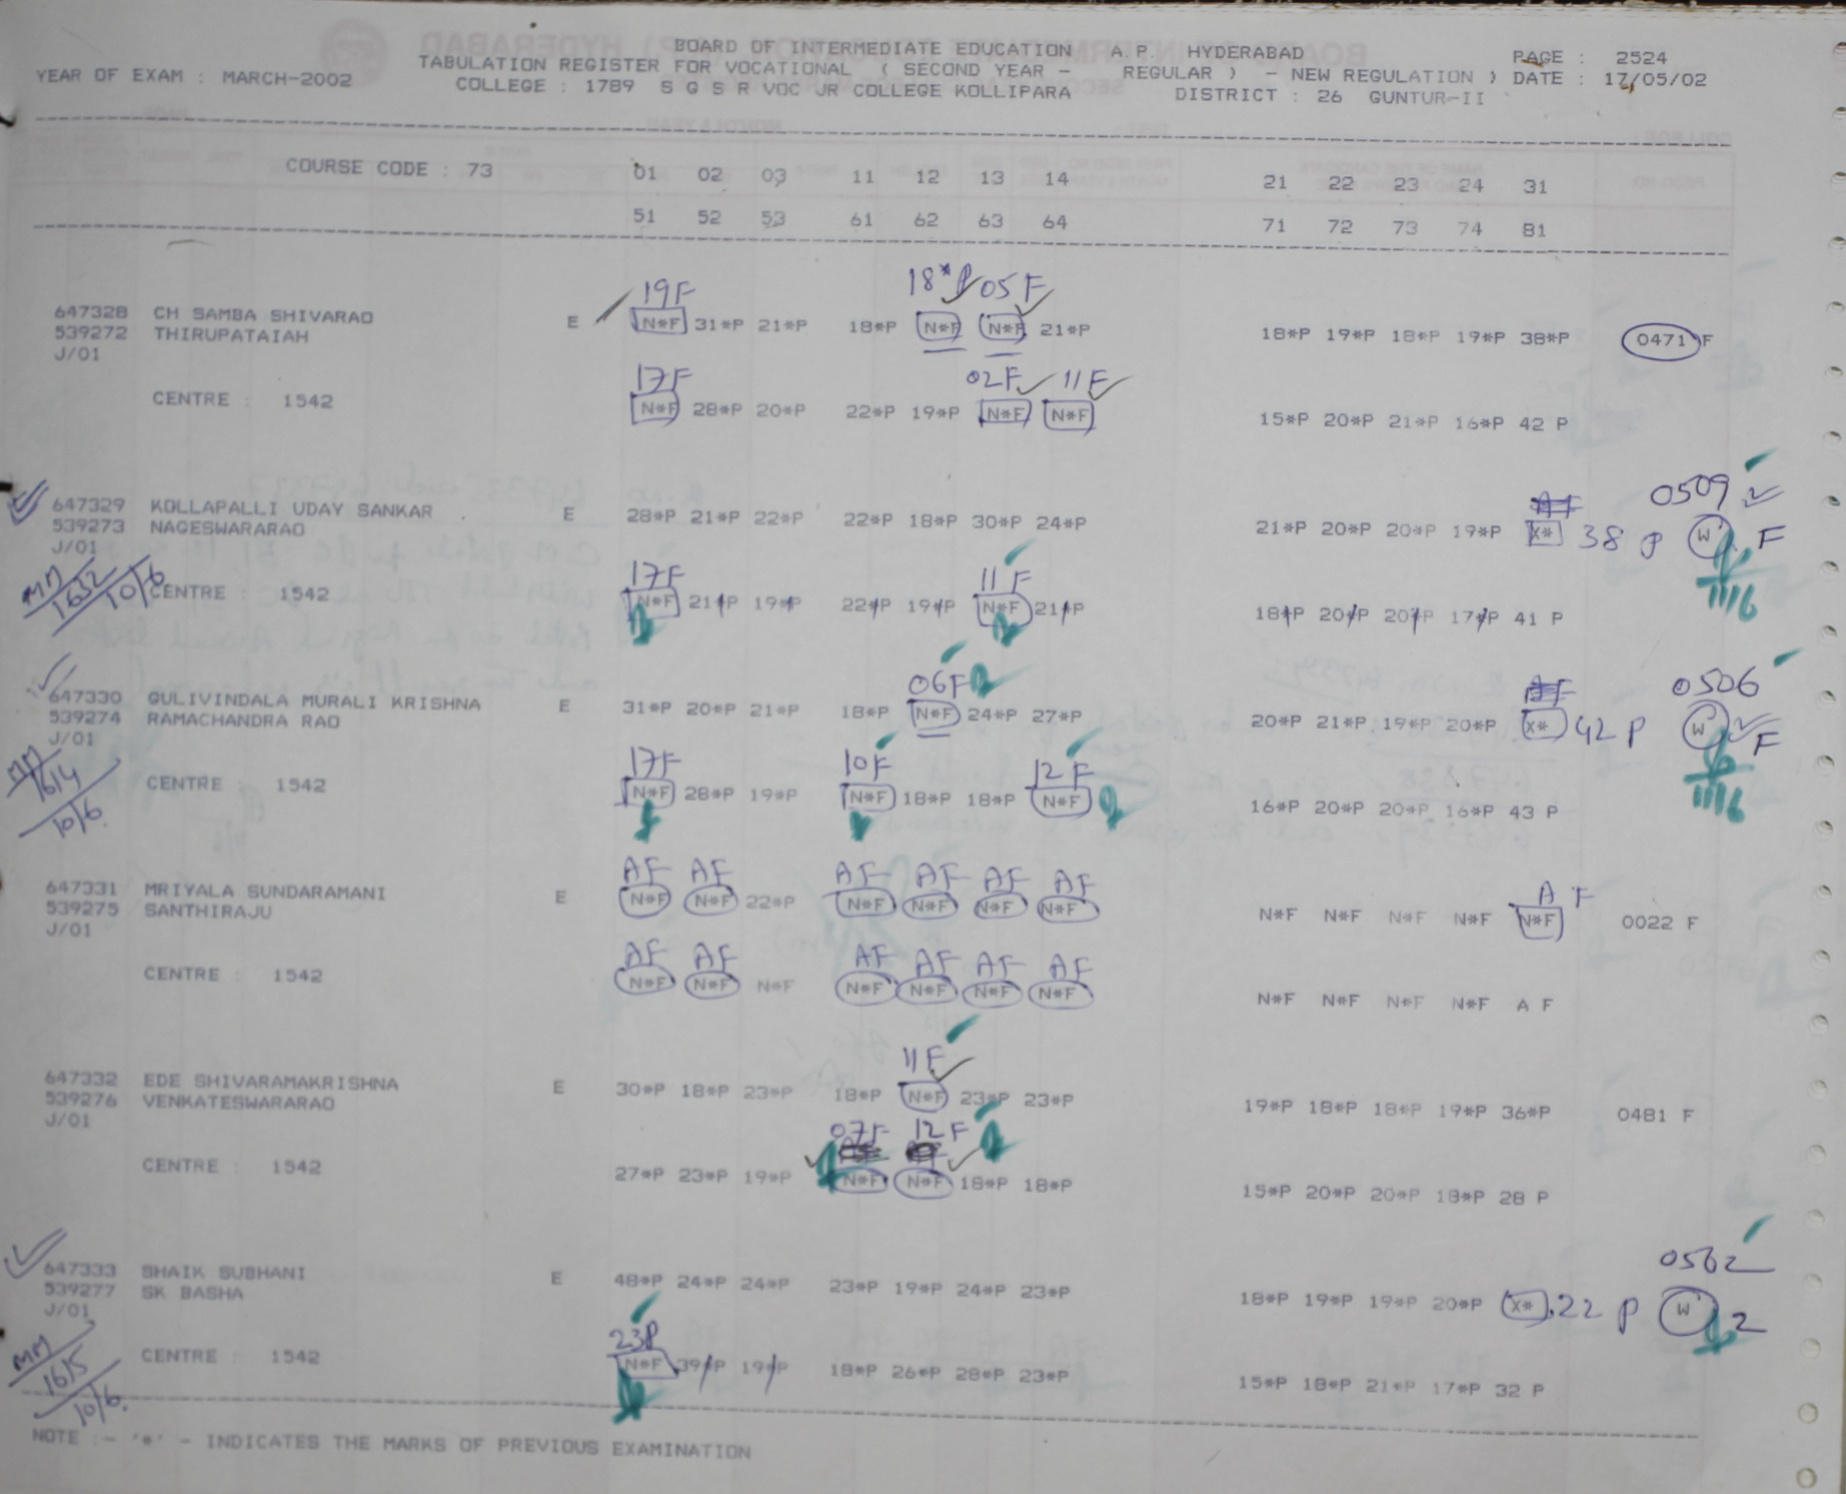 BOARD OF INTERMEDIATE EDUCATION A.P. HYDERABAD PAGE : 2524
YEAR OF EXAM : MARCH-2002 TABULATION REGISTER FOR VOCATIONAL ( SECOND YEAR - REGULAR ) - NEW REGULATION ) DATE : 17/05/02
COLLEGE : 1789 S G S R VOC JR COLLEGE KOLLIPARA DISTRICT : 26 GUNTUR-II
COURSE CODE : 73 01 02 03 11 12 13 14 21 22 23 24 31
51 52 53 61 62 63 64 71 72 73 74 81
19F 18*P 05F
647328 CH SAMBA SHIVARAO E N*F 31*P 21*P 18*P N*F N*F 21*P 18*P 19*P 18*P 19*P 38*P 0471 F
539272 THIRUPATAIAH
J/01
17F 02F 11F
CENTRE : 1542 N*F 28*P 20*P 22*P 19*P N*F N*F 15*P 20*P 21*P 16*P 42 P
0509
647329 KOLLAPALLI UDAY SANKAR E 28*P 21*P 22*P 22*P 18*P 30*P 24*P 21*P 20*P 20*P 19*P X* 38 P W F
539273 NAGESWARARAO
J/01
11/6
MM 1632 10/6
17F 11F
CENTRE : 1542 N*F 21*P 19*P 22*P 19*P N*F 21*P 18*P 20*P 20*P 17*P 41 P
06F AF 0506
647330 GULIVINDALA MURALI KRISHNA E 31*P 20*P 21*P 18*P N*F 24*P 27*P 20*P 21*P 19*P 20*P X* 42 P W F
539274 RAMACHANDRA RAO
J/01
11/6
MM 1614 10/6.
17F 10F 12F
CENTRE : 1542 N*F 28*P 19*P N*F 18*P 18*P N*F 16*P 20*P 20*P 16*P 43 P
AF AF AF AF AF AF A F
647331 MRIYALA SUNDARAMANI E N*F N*F 22*P N*F N*F N*F N*F N*F N*F N*F N*F N*F 0022 F
539275 SANTHIRAJU
J/01
AF AF AF AF AF AF
CENTRE : 1542 N*F N*F N*F N*F N*F N*F N*F N*F N*F N*F N*F A F
11F
647332 EDE SHIVARAMAKRISHNA E 30*P 18*P 23*P 18*P N*F 23*P 23*P 19*P 18*P 18*P 19*P 36*P 0481 F
539276 VENKATESWARARAO
J/01
07F 12F
CENTRE : 1542 27*P 23*P 19*P N*F N*F 18*P 18*P 15*P 20*P 20*P 18*P 28 P
0562
647333 SHAIK SUBHANI E 48*P 24*P 24*P 23*P 19*P 24*P 23*P 18*P 19*P 19*P 20*P X* 22 P W 2
539277 SK BASHA
J/01
MM 1615 10/6.
23P
CENTRE : 1542 N*F 39*P 19*P 18*P 26*P 28*P 23*P 15*P 18*P 21*P 17*P 32 P
NOTE :- '*' - INDICATES THE MARKS OF PREVIOUS EXAMINATION